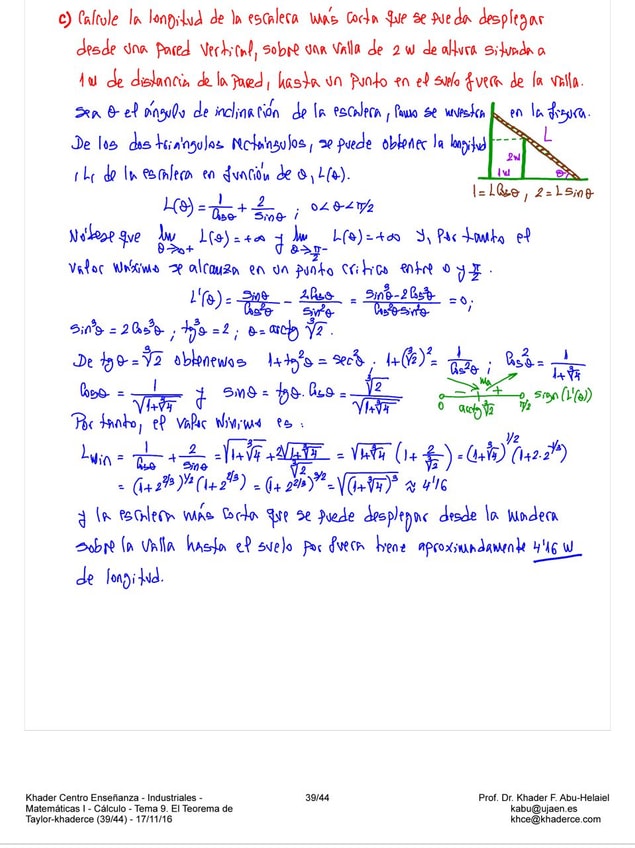 c) Calcule la longitud de la escalera más corta que se pueda desplegar
desde una pared vertical, sobre una valla de 2 m de altura situada a
1 m de distancia de la pared, hasta un punto en el suelo fuera de la valla.
Sea θ el ángulo de inclinación de la escalera, como se muestra en la figura.
De los dos triángulos rectángulos, se puede obtener la longitud
, L, de la escalera en función de θ, L(θ).
L
2m
1m
θ
1 = L Cosθ , 2 = L sinθ
L(θ) = 1/Cosθ + 2/sinθ ; 0<θ<π/2
Nótese que lim θ→0+ L(θ) = +∞ y lim θ→π/2- L(θ) = +∞ y, por tanto el
valor máximo se alcanza en un punto crítico entre 0 y π/2.
L'(θ) = sinθ/Cos²θ - 2Cosθ/sin²θ = (sin³θ - 2Cos³θ)/(Cos²θ sin²θ) = 0;
sin³θ = 2Cos³θ ; tg³θ = 2 ; θ = arctg ∛2.
De tgθ = ∛2 obtenemos 1+tg²θ = sec²θ ; 1+(∛2)² = 1/Cos²θ ; Cos²θ = 1/(1+∛4)
Cosθ = 1/√(1+∛4) y sinθ = tgθ. Cosθ = ∛2/√(1+∛4)
- +
0 arctg ∛2 π/2 sign(L'(θ))
Por tanto, el valor mínimo es:
Lmin = 1/Cosθ + 2/sinθ = √(1+∛4) + 2√(1+∛4)/∛2 = √(1+∛4) (1+ 2/∛2) = (1+∛4)^1/2 (1+2·2^-1/3)
= (1+2^2/3)^1/2 (1+2^2/3) = (1+2^2/3)^3/2 = √(1+∛4)³ ≈ 4'16
y la escalera más corta que se puede desplegar desde la madera
sobre la valla hasta el suelo por fuera tiene aproximadamente 4'16 m
de longitud.
Khader Centro Enseñanza - Industriales -
Matemáticas I - Cálculo - Tema 9. El Teorema de
Taylor-khaderce (39/44) - 17/11/16
39/44
Prof. Dr. Khader F. Abu-Helaiel
kabu@ujaen.es
khce@khaderce.com